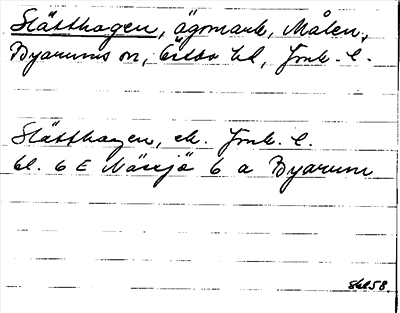 Slätthagen, ägomark, Målen,
Byarums sn, Östbo hd, Jönk. l.
Slätthagen, ek. Jönk. l.
bl. 6 E Nässjö 6 a Byarum
58